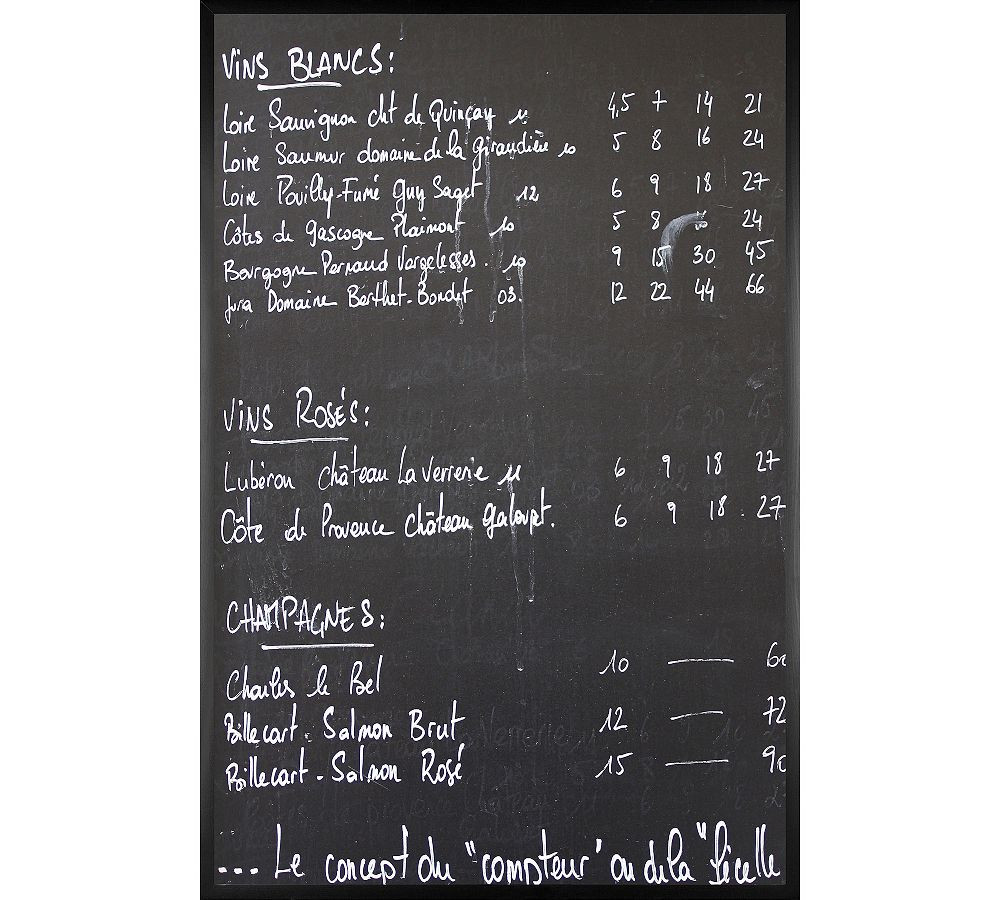 Vins BLANCS:
Loire Sauvignon cht de Quinçay 11 4,5 7 14 21
Loire Saumur domaine de la Giraudière 10 5 8 16 24
Loire Pouilly-Fumé Guy Saget 12 6 9 18 27
Côtes de Gascogne Plaimont 10 5 8 24
Bourgogne Pernand Vergelesses. 10 9 15 30 45
Jura Domaine Berthet-Bondet 03. 12 22 44 66
Vins Rosés:
Lubéron château La Verrerie 11 6 9 18 27
Côte de Provence château Galoupet. 6 9 18 27
CHAMPAGNES:
Charles le Bel 10 — 60
Billecart-Salmon Brut 12 — 72
Billecart-Salmon Rosé 15 — 90
... Le concept du "compteur" ou de la "ficelle